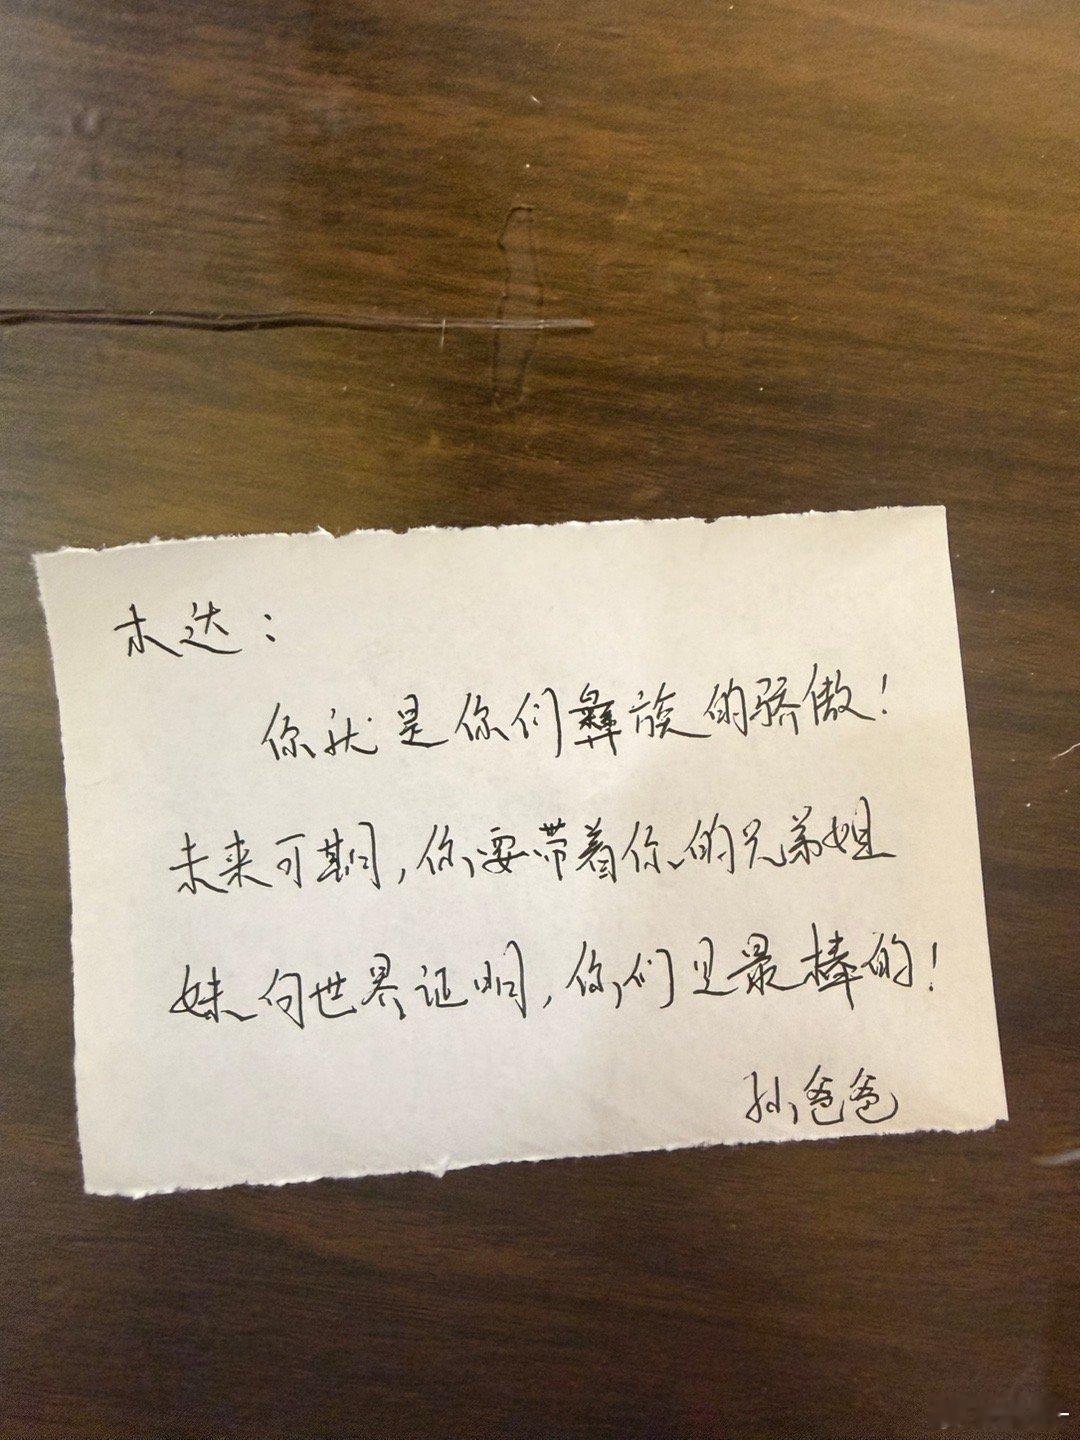 木达：
你就是你们彝族的骄傲！
未来可期，你要带着你的兄弟姐
妹向世界证明，你们是最棒的！
孙爸爸